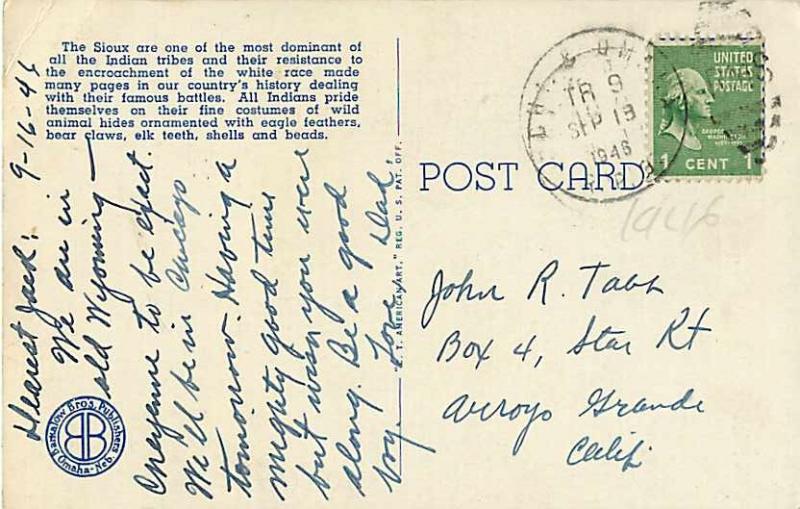 The Sioux are one of the most dominant of
all the Indian tribes and their resistance to
the encroachment of the white race made
many pages in our country's history dealing
with their famous battles. All Indians pride
themselves on their fine costumes of wild
animal hides ornamented with eagle feathers,
bear claws, elk teeth, shells and beads.
9-16-46
Dearest Jack:
We are in
old Wyoming —
Cheyenne to be exact.
We'll be in Chicago
tomorrow. Having a
mighty good time
but wish you were
along. Be a good
boy. Love, Dad.
Barkalow Bros. Publishers
Omaha-Neb.
"C. T. AMERICAN ART," REG. U. S. PAT. OFF.
POST CARD
& OMA
TR 9
SEP 18
1946
UNITED
STATES
POSTAGE
GEORGE
WASHINGTON
1 CENT 1
1946
John R. Tabb
Box 4, Star Rt
Arroyo Grande
Calif